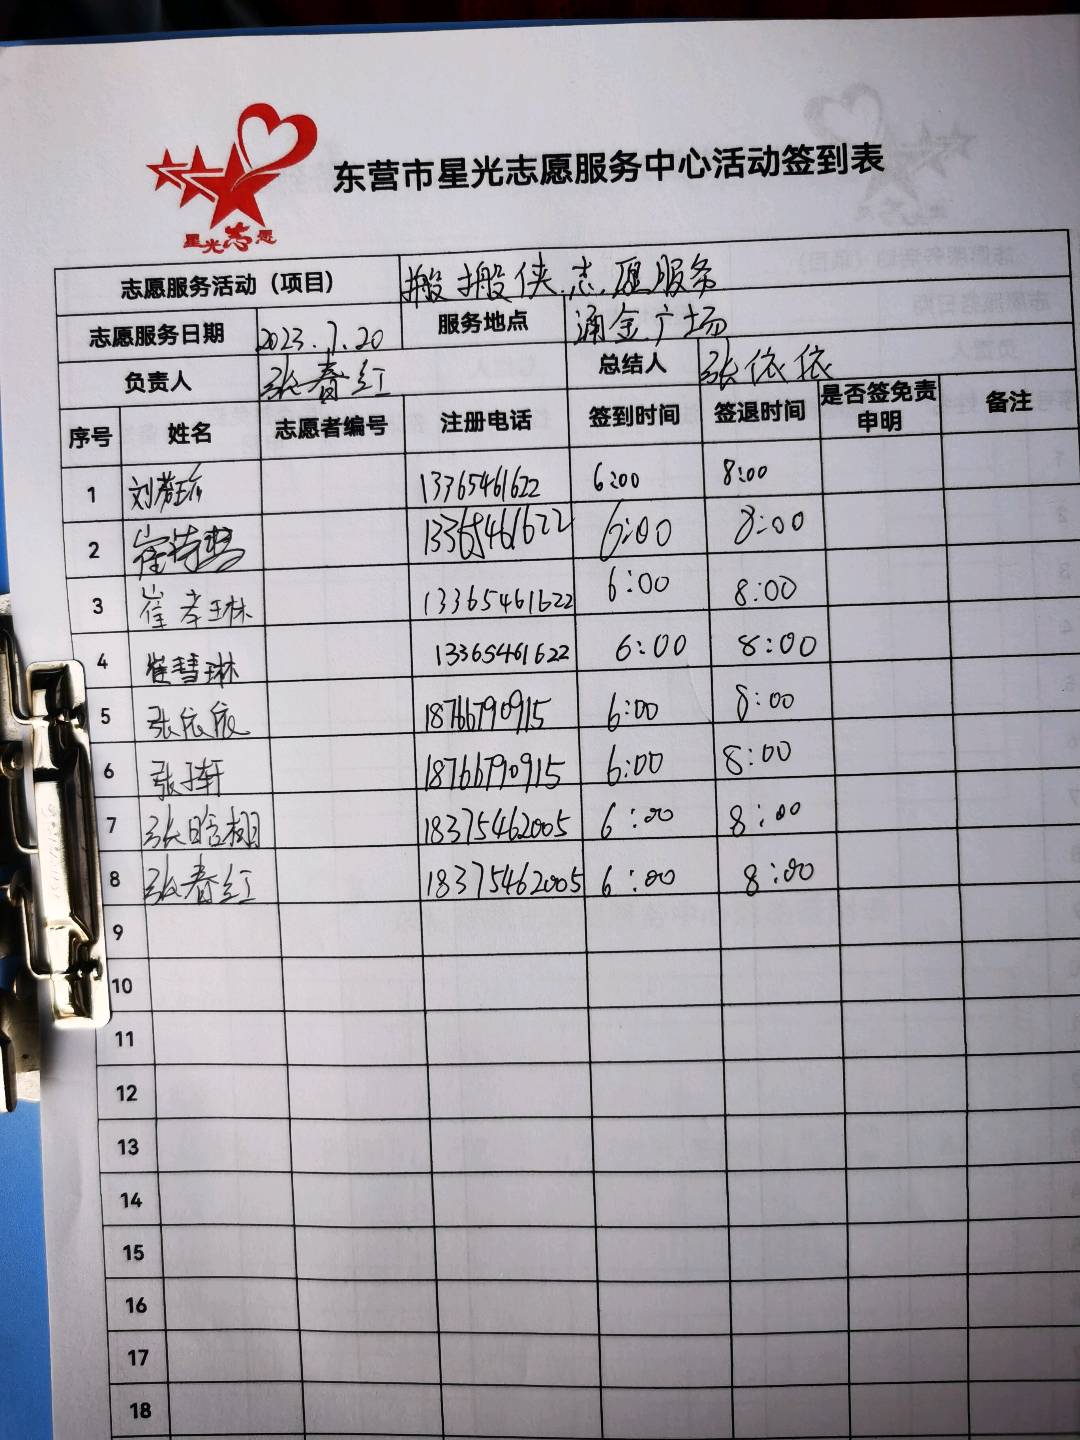 星光志愿
东营市星光志愿服务中心活动签到表
志愿服务活动（项目） 搬搬侠志愿服务
志愿服务日期 2023.7.20 服务地点 涌金广场
负责人 张春红 总结人 张依依
序号 姓名 志愿者编号 注册电话 签到时间 签退时间 是否签免责申明 备注
1 刘 13365461622 6:00 8:00
2 崔 13365461622 6:00 8:00
3 崔孝琳 13365461622 6:00 8:00
4 崔慧琳 13365461622 6:00 8:00
5 张依依 18766790915 6:00 8:00
6 张子轩 18766790915 6:00 8:00
7 张晗栩 18375462005 6:00 8:00
8 张春红 18375462005 6:00 8:00
9
10
11
12
13
14
15
16
17
18